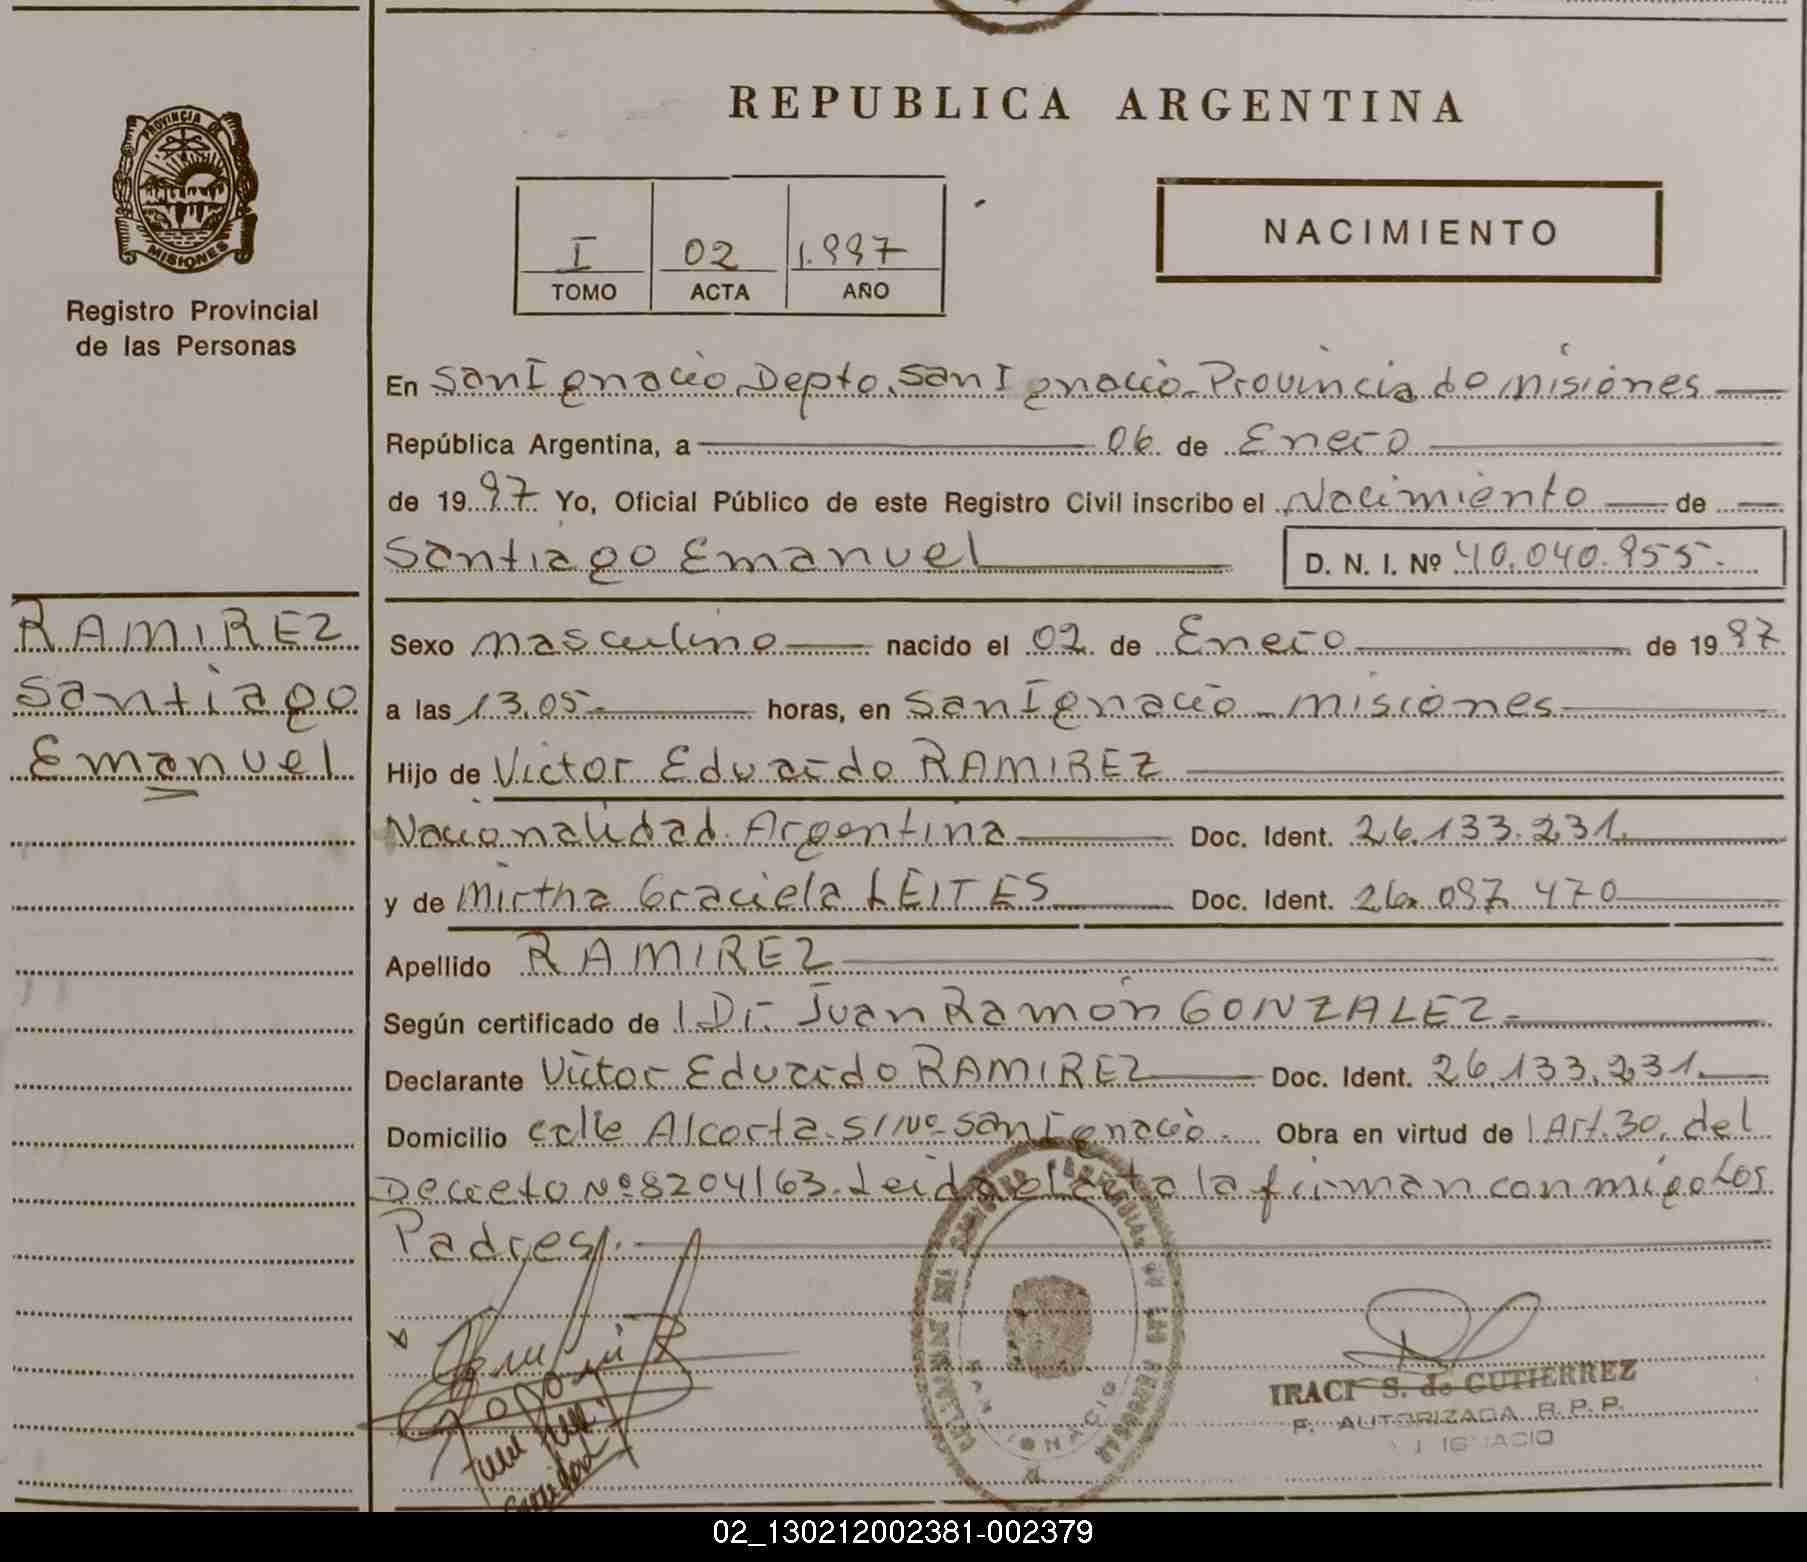 REPUBLICA ARGENTINA
PROVINCIA DE
MISIONES
Registro Provincial
de las Personas
I 02 1.997
TOMO ACTA AÑO
NACIMIENTO
En San Ignacio Depto. San Ignacio. Provincia de Misiones
República Argentina, a 06 de Enero
de 1997 Yo, Oficial Público de este Registro Civil inscribo el Nacimiento de
Santiago Emanuel D. N. I. Nº 40.040.955.
RAMIREZ
Santiago
Emanuel
Sexo masculino nacido el 02 de Enero de 1997
a las 13,05 horas, en San Ignacio - Misiones
Hijo de Victor Eduardo RAMIREZ
Nacionalidad Argentina Doc. Ident. 26.133.231.
y de Mirtha Graciela LEITES Doc. Ident. 26.097.470
Apellido RAMIREZ
Según certificado de l Dr. Juan Ramón GONZALEZ.
Declarante Victor Eduardo RAMIREZ Doc. Ident. 26.133.231.
Domicilio calle Alcorta. S/Nº San Ignacio. Obra en virtud de l Art. 30. del
Decreto Nº 8204/63. Leida el acta la firman conmigo Los
Padres.
SAN IGNACIO
IRACI S. de GUTIERREZ
F. AUTORIZADA R.P.P.
IGNACIO
02_130212002381-002379